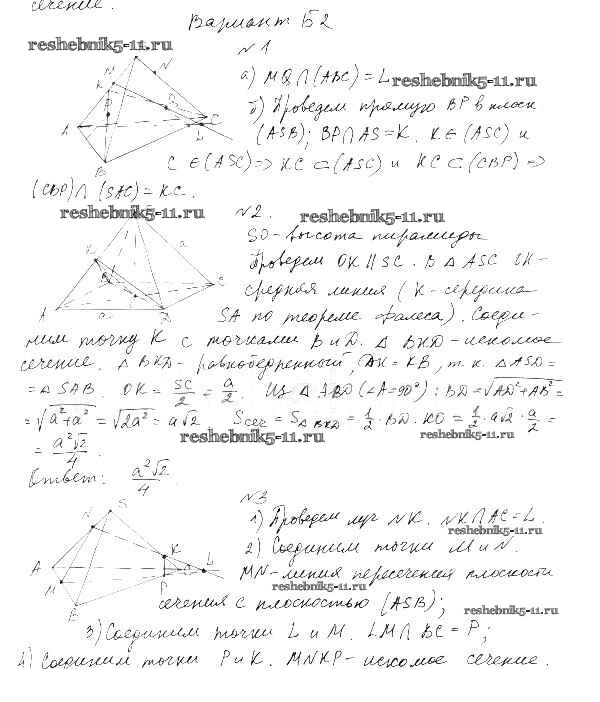 сечение.
Вариант Б2
reshebnik5-11.ru
№1
а) MQ∩(ABC)=L
reshebnik5-11.ru
б) Проведем прямую BP в плоск
(ASB); BP∩AS=K. K∈(ASC) и
C∈(ASC)=>KC⊂(ASC) и KC⊂(CBP)=>
(CBP)∩(SAC)=KC.
reshebnik5-11.ru
№2.
reshebnik5-11.ru
SO-высота пирамиды
Проведем OK||SC. В △ASC OK-
средняя линия (K-середина
SA по теореме Фалеса). Соеди-
ним точку K с точками B и D. △BKD-искомое
сечение. △BKD- равнобедренный, DK=KB, т.к. △ASD=
=△SAB. OK=SC/2=a/2. Из △ABD(∠A=90°): BD=√AD²+AB²=
=√a²+a²=√2a²=a√2 Sсеч=S△BKD=1/2·BD·KO=1/2·a√2·a/2=
reshebnik5-11.ru
reshebnik5-11.ru
=a²√2/4
Ответ: a²√2/4.
№3
1) Проведем луч NK. NK∩AC=L.
reshebnik5-11.ru
2) Соединим точки M и N.
MN-линия пересечения плоскости
reshebnik5-11.ru
сечения с плоскостью (ASB);
reshebnik5-11.ru
3) Соединим точки L и M. LM∩BC=P;
4) Соединим точки P и K. MNKP-искомое сечение.